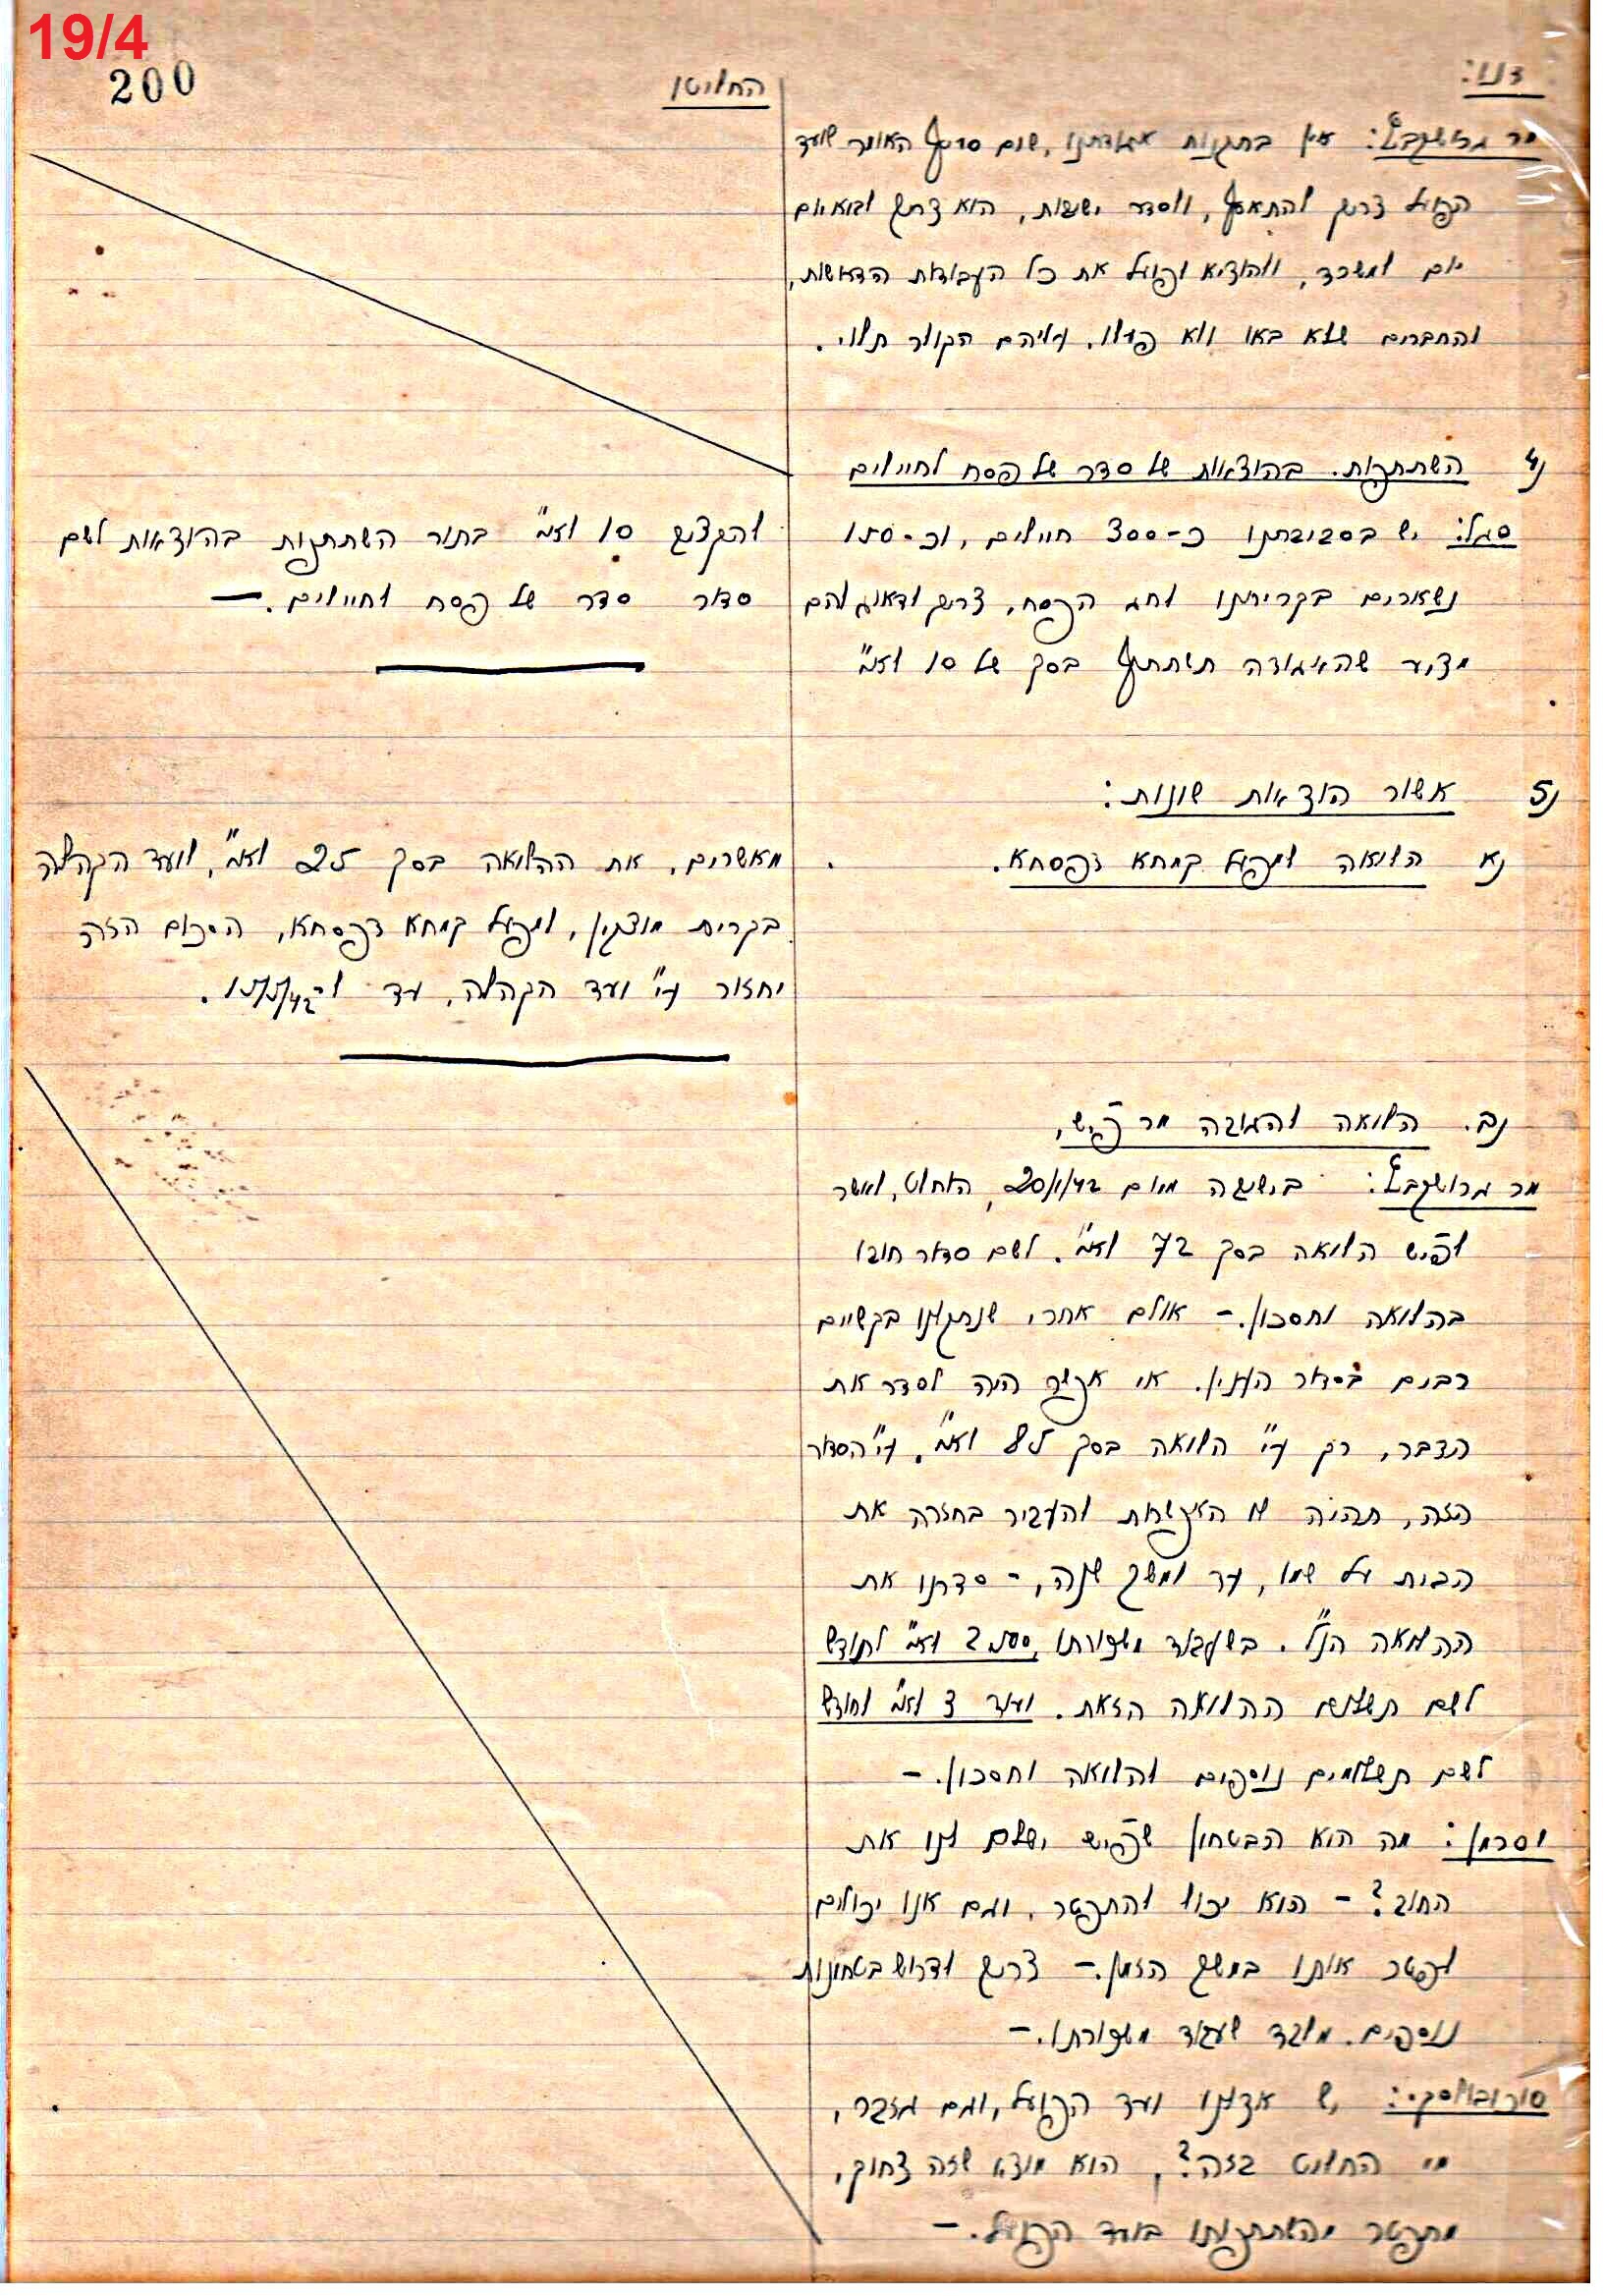 19/4
200
דנו:
החליטו
מר גרושקביץ: אין בתקנות אגודתנו, שום סעיף האומר שועד
הפועל צריך להתאסף, ולסדר ישיבות, הוא צריך לבוא יום
יום למשרד, ולהוציא לפועל את כל העבודות הדרושות,
והחברים שלא באו ולא פעלו, עליהם הקולר תלוי.
4) השתתפות. בהוצאות של סדר של פסח לחיילים
סגל: יש בסביבתנו כ-300 חיילים, וכ-150
נשארים בקריתנו לחג הפסח, צריך לדאוג להם
מציע שהאגודה תשתתף בסך של 10 לא"י
להקציב 10 לא"י בתור השתתפות בהוצאות לשם
סדור סדר של פסח לחיילים. —
5) אשור הוצאות שונות:
א) הלואה למפעל קמחא דפסחא.
מאשרים, את ההלואה בסך 25 לא"י, לועד הקהלה
בקרית מוצקין, למפעל קמחא דפסחא, הסכום הזה
יחזור ע"י ועד הקהלה, עד ל-15/5/42.
ב). הלואה להגובה מר פיש,
מר גרושקביץ: בישיבה מיום 20/1/42, הוחלט, לאשר
לפיש הלואה בסך 72 לא"י. לשם סדור חובו
בהלואה וחסכון. – אולם אחרי שנתקלנו בקשיים
רבים בסדור הענין. אי אפשר היה לסדר את
הדבר, רק ע"י הלואה בסך 85 לא"י. ע"י הסדור
הזה, תהיה לו האפשרות להעביר בחזרה את
הבית על שמו, עד למשך שנה, – סדרנו את
ההלואה הנ"ל. בשעבוד משכורתו 2.500 לא"י לחודש
לשם תשלום ההלואה הזאת. ועוד 3 לא"י לחודש
לשם תשלומים נוספים להלואה וחסכון. –
וסרמן: מה הוא הבטחון שפיש ישלם לנו את
החוב? – הוא יכול להתפטר, וגם אנו יכולים
לפטר אותו במשך הזמן. – צריך לדרוש בטחונות
נוספים. מלבד שעבוד משכורתו. –
סורובולסקי: יש אצלנו ועד הפועל, וגם גזבר,
מי החליט בזה?, הוא מוצא שזה צחוק,
מתפטר מהשתתפותו בועד הפועל. –